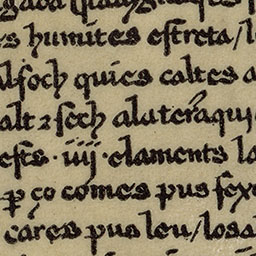 es humites estreta / l
alfoch quies caltes a
alt ⁊ sech alaterra qui
ests · iiij · elaments la
ꝑ ço comes pus fexu
cares pus leu / losal